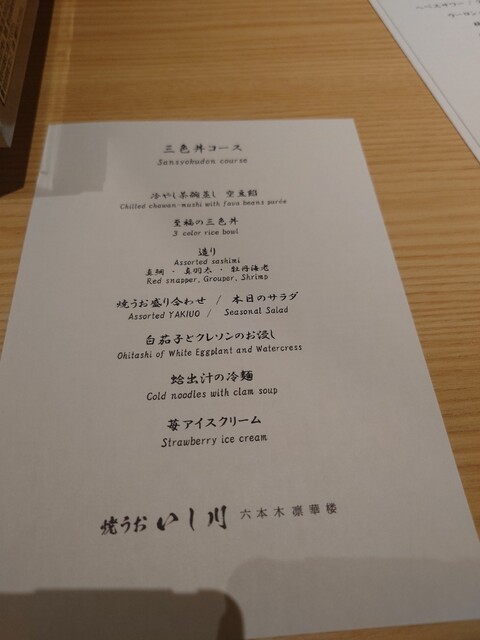 三色丼コース
Sansyokudon course
冷やし茶碗蒸し 空豆餡
Chilled chawan-mushi with fava beans purée
至福の三色丼
3 color rice bowl
造り
Assorted sashimi
真鯛 ・ 真羽太 ・ 牡丹海老
Red snapper, Grouper, Shrimp
焼うお盛り合わせ / 本日のサラダ
Assorted YAKIUO / Seasonal Salad
白茄子とクレソンのお浸し
Ohitashi of White Eggplant and Watercress
蛤出汁の冷麺
Cold noodles with clam soup
苺アイスクリーム
Strawberry ice cream
焼うお いし川 六本木 凛華楼